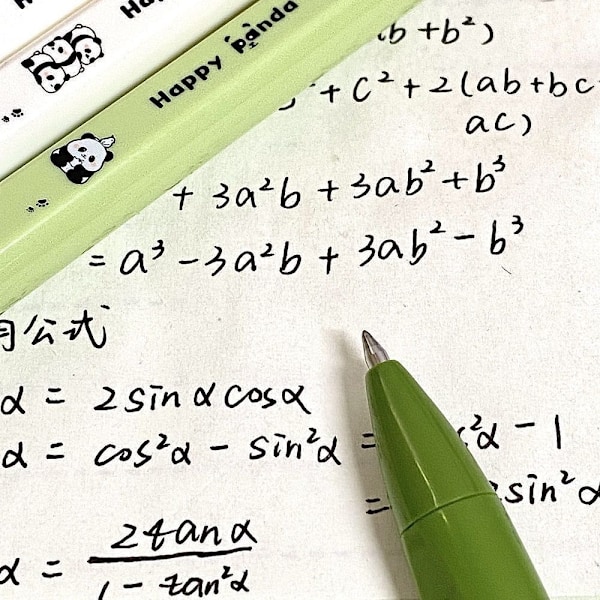 Happy panda
b + b²)
+ c² + 2(ab + bc
ac)
+ 3a²b + 3ab² + b³
= a³ - 3a²b + 3ab² - b³
公式
α = 2 sin α cos α
α = cos²α - sin²α = ²α - 1
= sin²α
α = 2tanα / 1 - tan²α